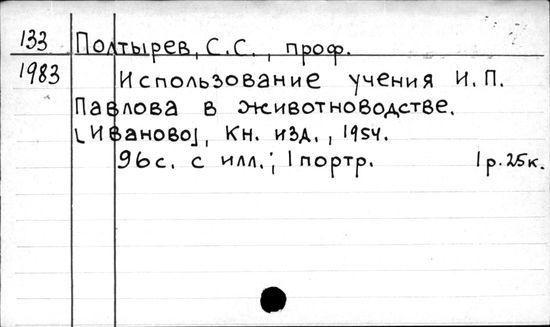 133 Полтырев, С.С., проф.
1983 Использование учения И.П.
Павлова в животноводстве.
[Иваново], Кн. изд., 1954.
96с. с илл.; 1 портр. 1р.25к.